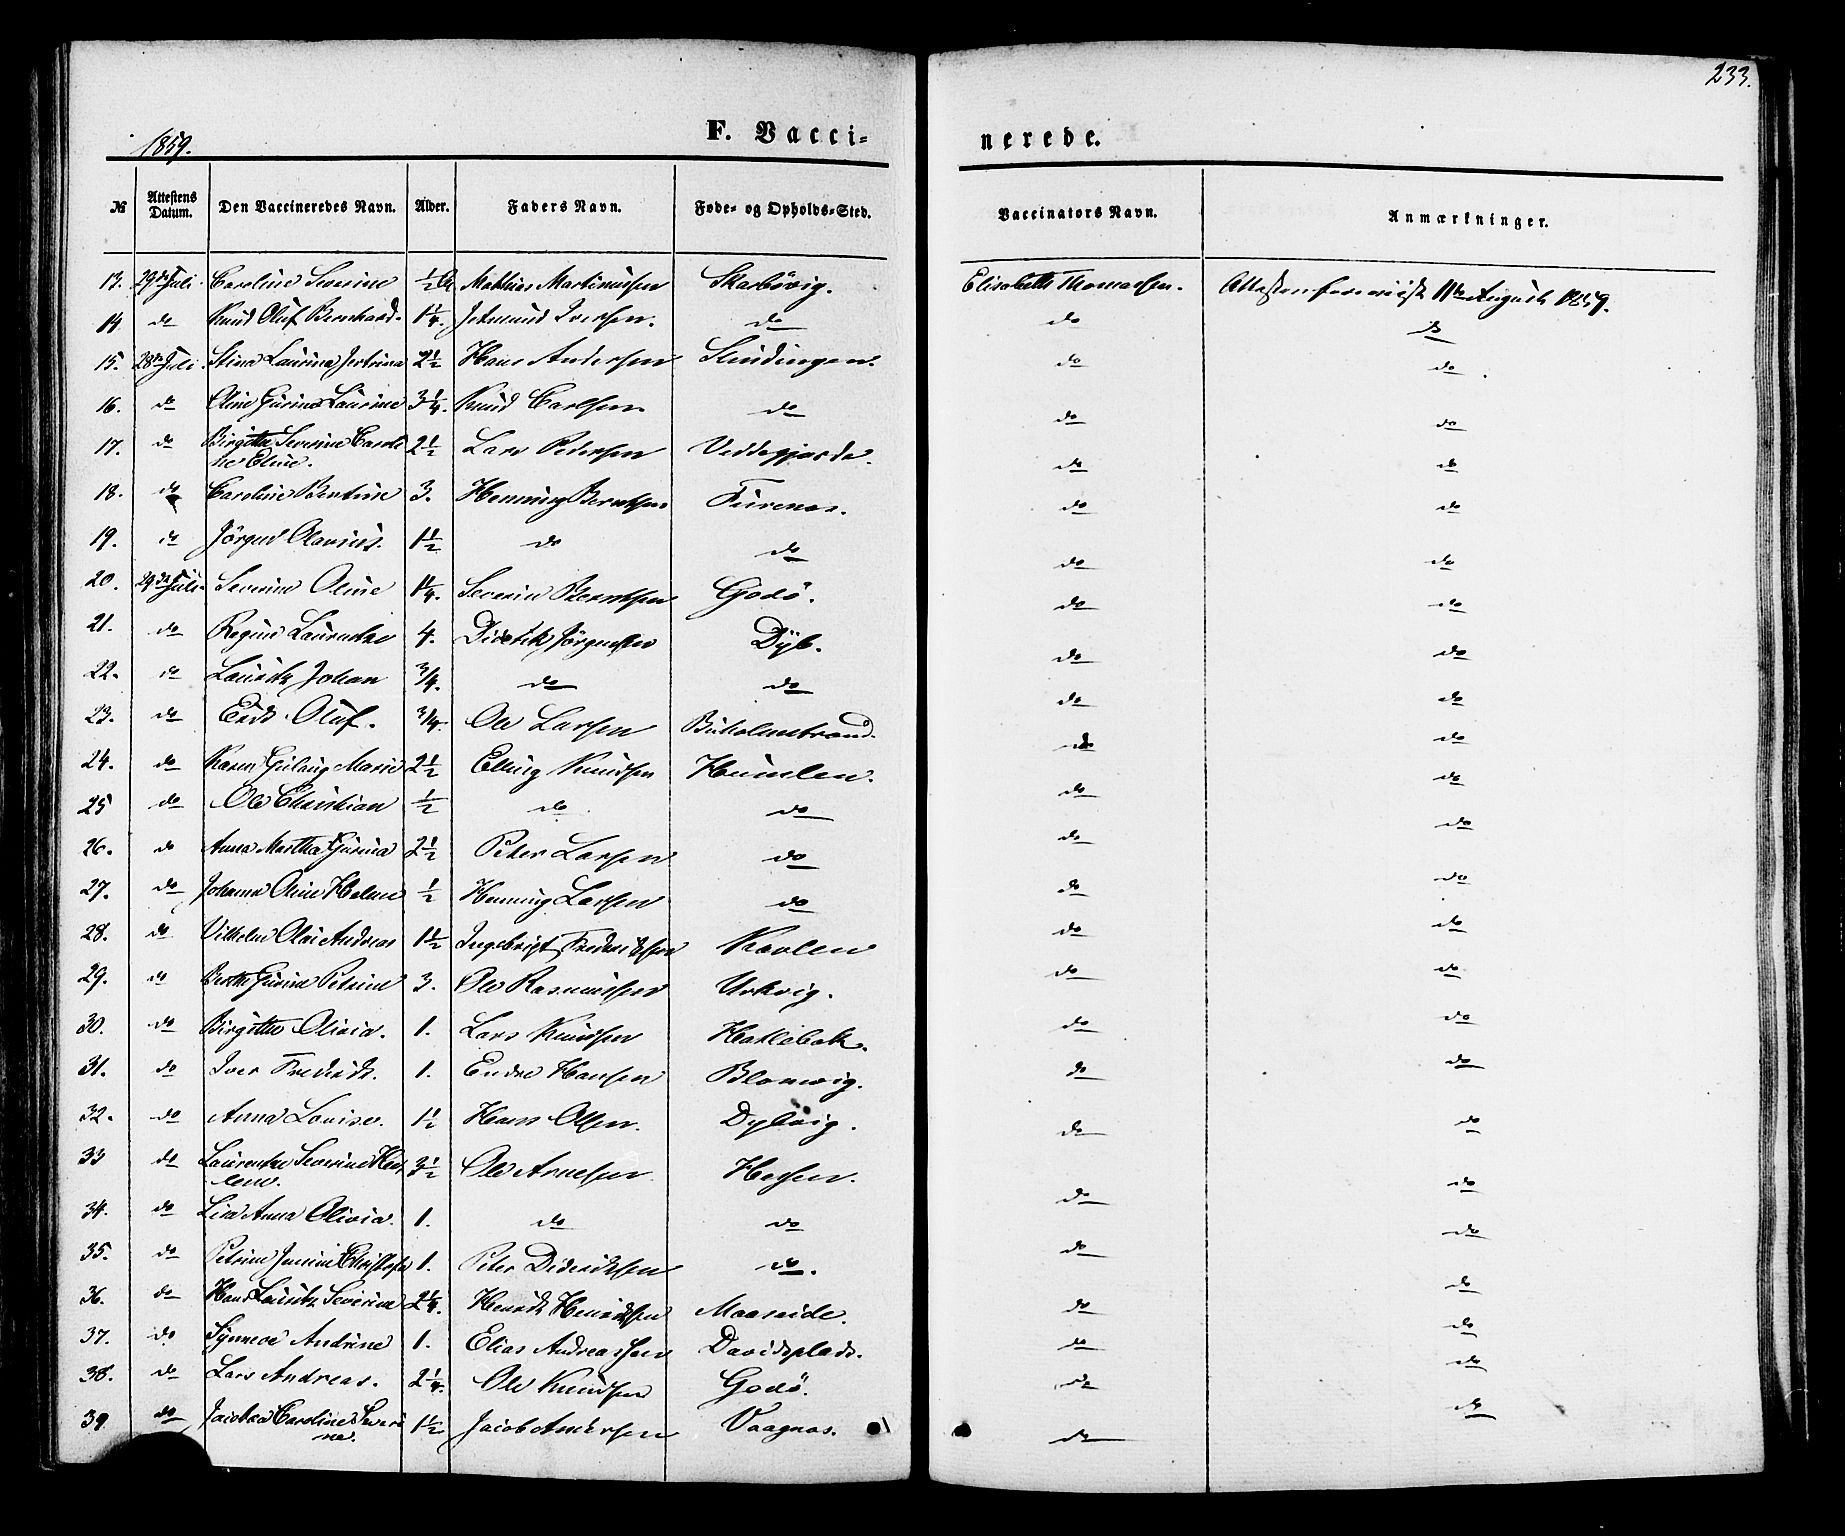 233.
1859.
F. Vacci=
nerede.
№ Attestens Datum. Den Vaccineredes Navn. Alder. Faders Navn. Føde- og Opholds-Sted. Vaccinators Navn. Anmærkninger.
13. 29de Juli. Caroline Severine ½ Mathias Martinussen Skarbövig. Elisabeth Thomassen. Attesten foreviist 11te August 1859.
14 do Knud Oluf Bernhard. 1¼. Jetmund Iversen. do do do
15. 28de Juli. Stina Laurina Jertrina 2½ Hans Andersen Slindingen. do do
16. do Oline Gurine Laurine 3¼. Knud Carlsen do do do
17. do Birgitte Severine Caroli
ne Eline. 2½ Lars Pedersen Veddegjærde. do do
18. do Caroline Bertine 3. Henning Berntsen Furenes. do do
19. do Jörgen Olavius. 1½ do do do do
20. 29de Juli. Severine Oline 1¼. Severin Berntsen Godö. do do
21. do Regine Laurentze 4. Diderik Jörgensen Dyb. do do
22. do Lauritz Johan ¾. do do do do
23. do Erik Oluf. ¾. Ole Larsen Buholmstrand. do do
24. do Karen Gulaug Marie 2½ Elling Knudsen Humlen. do do
25 do Ole Christian ½ do do do do
26. do Anna Martha Gurina 2½ Peter Larsen do do do
27. do Johanne Oline Helene ½ Henning Larsen do do do
28. do Vilhelm Olai Andreas 1½ Ingebrigt Fredriksen Kovlen do do
29. do Berthe Gurine Petrine 3. Ole Rasmussen Urkvig. do do
30. do Birgitte Olivia. 1. Lars Knudsen Haklebak. do do
31. do Iver Fredrik. 1. Endre Hansen Blomvig. do do
32. do Anna Louise. 1½ Hans Olsen. Dybvig. do do
33 do Laurentze Severine Hen
lene. 3½ Ole Arnesen. Hessen. do do
34. do Lisa Anna Olivia. 1. do do do do
35. do Petrine 1. Peter Dideriksen do. do do
36. do Hans Lauritz Severine 2¼. Henrik Henriksen Maaseide. do do
37. do Synneve Andrine 1. Elias Andreassen Davidsplads. do do
38. do Lars Andreas. 2¼. Ole Knudsen Godö. do do
39 do Jacobea Caroline Severi
ne. 1½ Jacob Andersen Vaagnes. do do